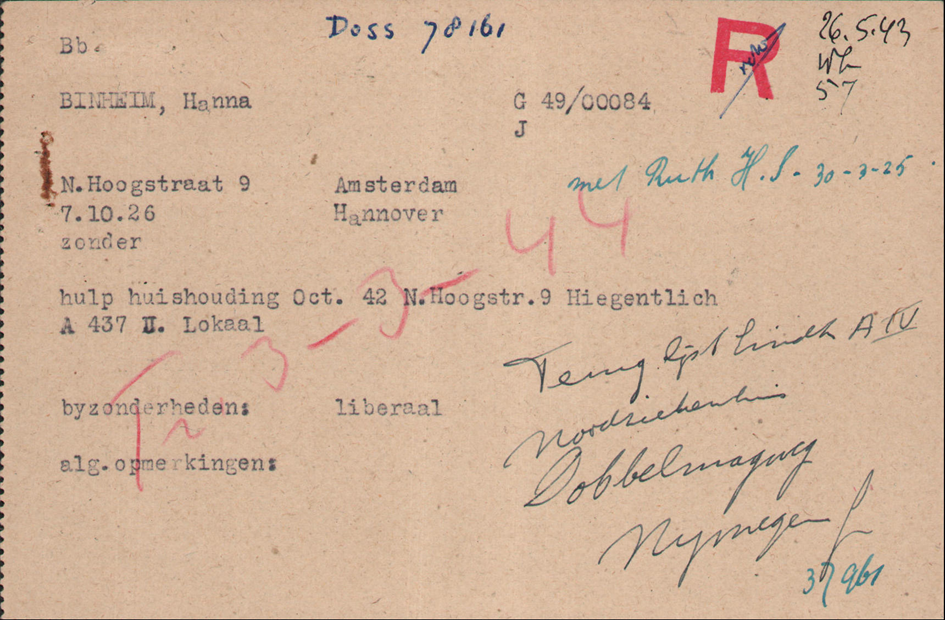 Doss 78161
R
26.5.43
57
Bb.
BINHEIM, Hanna G 49/00084
J
met Ruth H.S. 30-3-25.
N.Hoogstraat 9 Amsterdam
7.10.26 Hannover
zonder
hulp huishouding Oct. 42 N.Hoogstr.9 Hiegentlich
A 437 II. Lokaal
Tr. 3-3-44
Terug lijst A IV
Noodziekenhuis
byzonderheden: liberaal
alg.opmerkingen:
Dobbelmanweg
Nymegen
37961